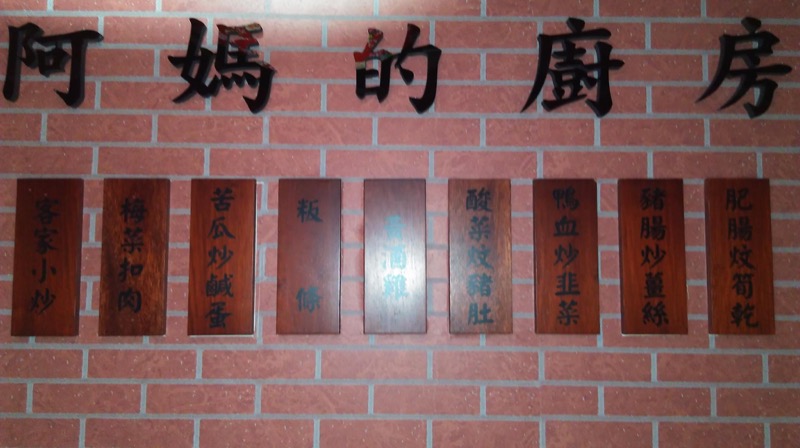 阿媽的廚房
客家小炒
梅菜扣肉
苦瓜炒鹹蛋
粄條
酒雞
酸菜炆豬肚
鴨血炒韭菜
豬腸炒薑絲
肥腸炆筍乾